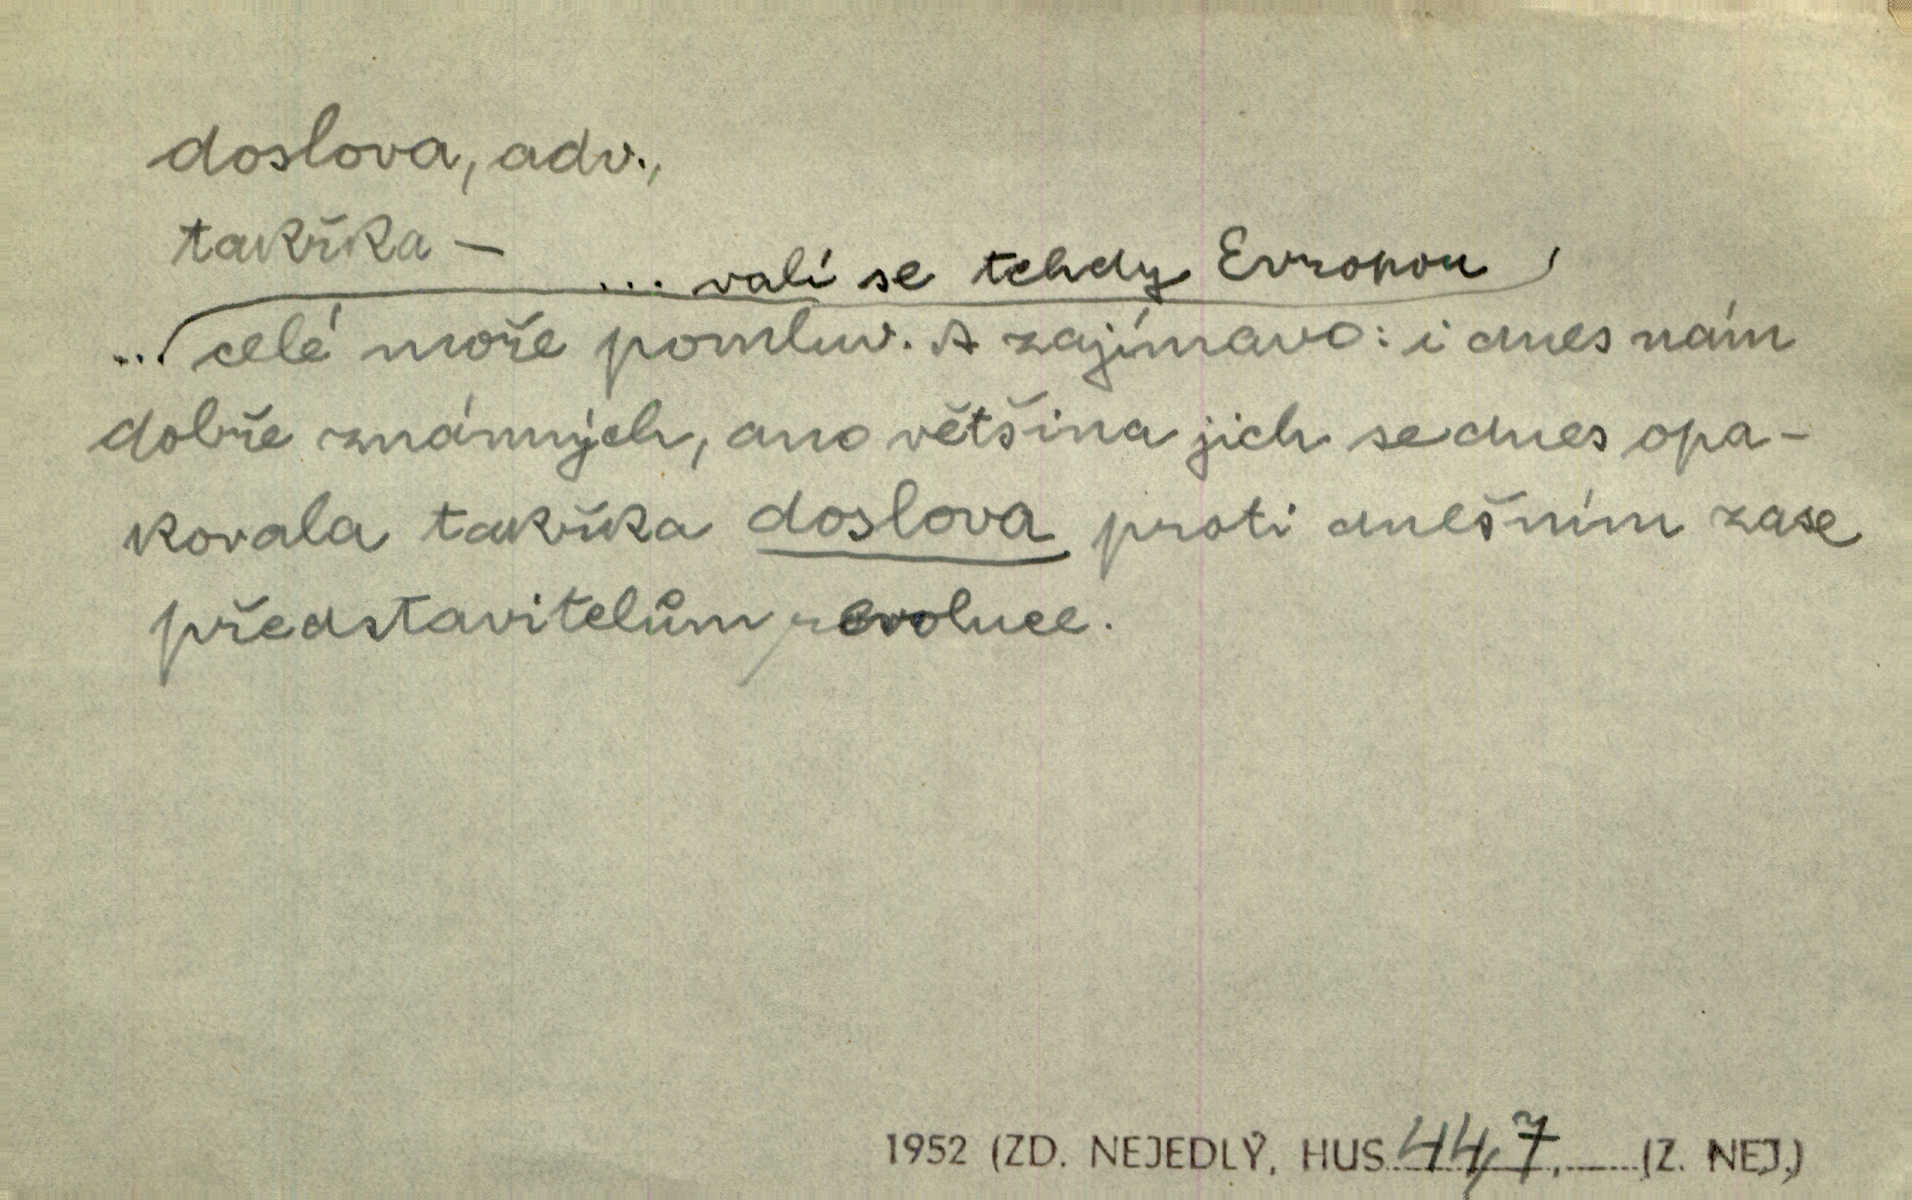 doslova, adv.,
takřka —
... valí se tehdy Evropou
... celé moře pomluv. A zajímavo: i dnes nám
dobře známých, ano většina jich se dnes opa-
kovala takřka doslova proti dnešním zase
představitelům revoluce.
1952 (ZD. NEJEDLÝ, HUS 44,7, (Z. NEJ.)